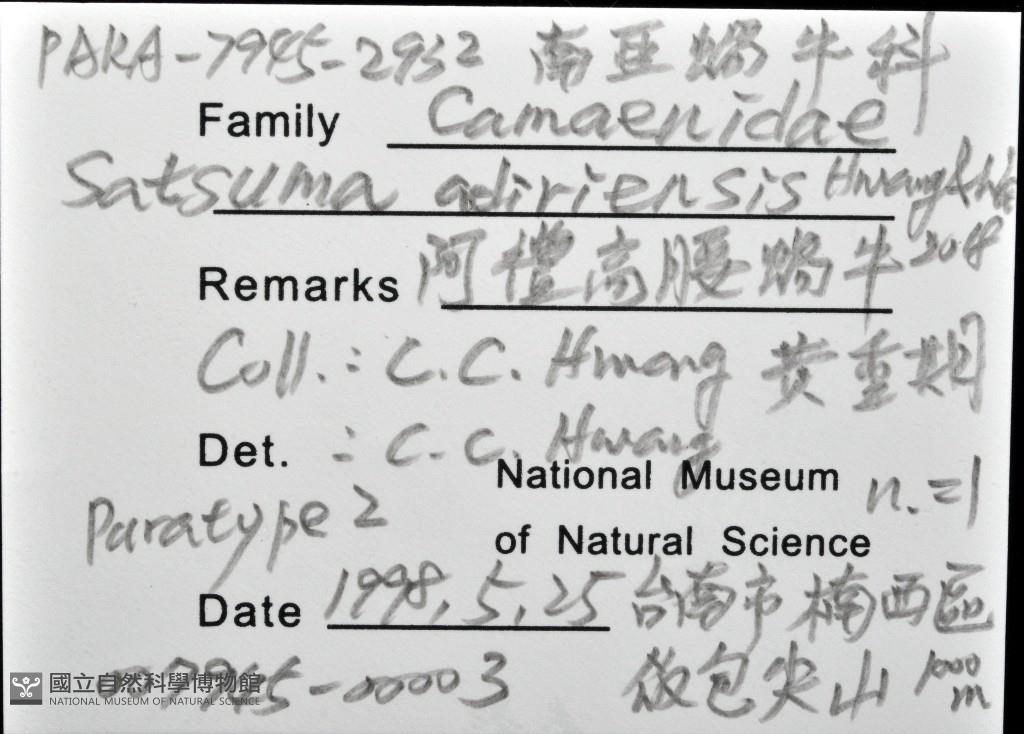 PAKA-7945-2932 南亚蝸牛科
Family Camaenidae
Satsuma adiriensis Hwang &
Remarks 阿禮高腰蝸牛 2018
Coll.: C.C. Hwang 黄重期
Det. : C.C. Hwang
National Museum n.=1
Paratype 2
of Natural Science
Date 1998.5.25 台南市楠西區
7945-00003 飯包尖山 1000m
國立自然科學博物館
NATIONAL MUSEUM OF NATURAL SCIENCE